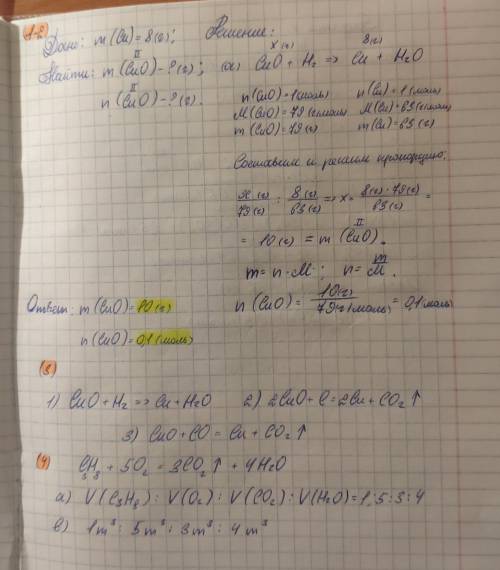 1-2
Дано: m(Cu)=8(г); Решение:
Найти: m(CuO)-?(г); (а) CuO + H₂ => Cu + H₂O
II x(г) 8(г)
n(CuO)-?(г). n(CuO)=1(моль) n(Cu)=1(моль)
II M(CuO)=79(г/моль) M(Cu)=63(г/моль)
m(CuO)=79(г) m(Cu)=63(г)
Составим и решим пропорцию:
x(г)/79(г) : 8(г)/63(г) => x = 8(г)·79(г)/63(г) =
= 10(г) = m(CuO).
II
m=n·M; n=m/M.
Ответ: m(CuO)=10(г) n(CuO)=10(г)/79(г/моль)=0,1(моль)
n(CuO)=0,1(моль)
(3)
1) CuO+H₂=>Cu+H₂O 2) 2CuO+C=2Cu+CO₂↑
3) CuO+CO=Cu+CO₂↑
(4)
C₃H₈+5O₂=3CO₂↑+4H₂O
а) V(C₃H₈):V(O₂):V(CO₂):V(H₂O)=1:5:3:4
в) 1m³:5m³:3m³:4m³